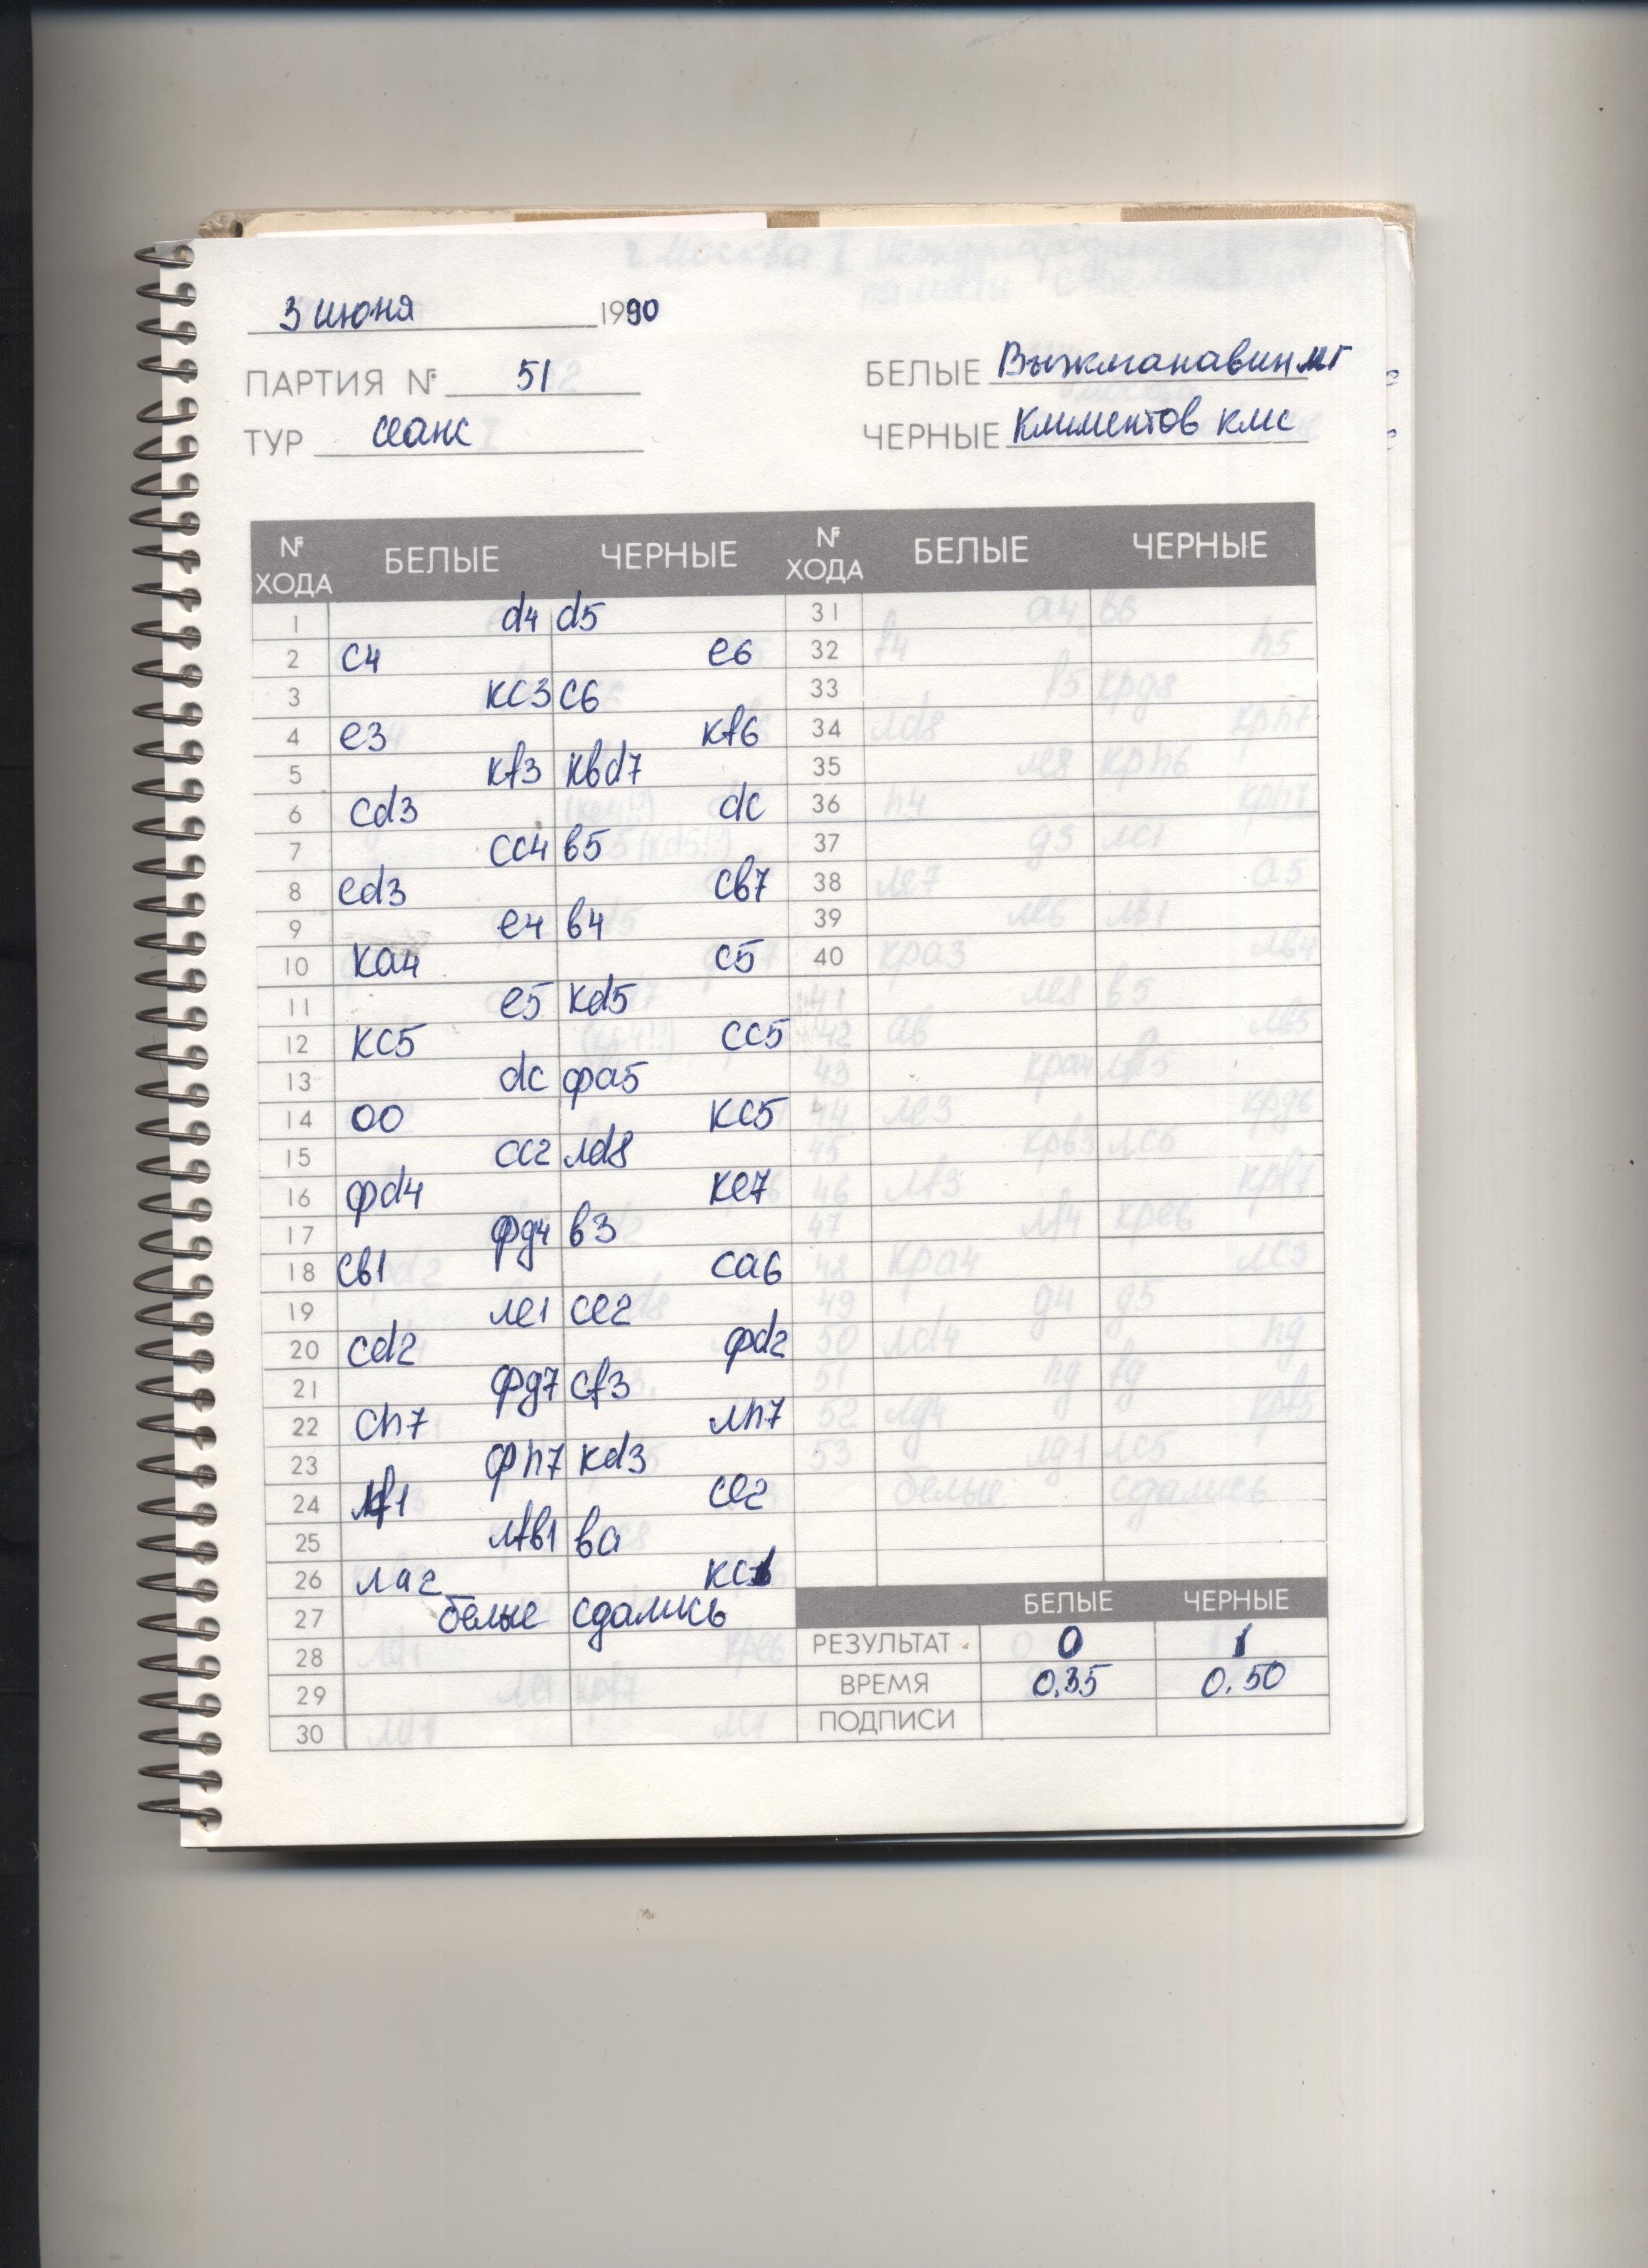 3 июня 1990
ПАРТИЯ № 51 БЕЛЫЕ Выжманавин мг
ТУР сеанс ЧЕРНЫЕ Климентов кмс
№ ХОДА БЕЛЫЕ ЧЕРНЫЕ № ХОДА БЕЛЫЕ ЧЕРНЫЕ
1 d4 d5 31
2 c4 e6 32
3 кc3 c6 33
4 e3 кf6 34
5 кf3 кbd7 35
6 cd3 dc 36
7 cc4 b5 37
8 cd3 cb7 38
9 e4 b4 39
10 ка4 c5 40
11 e5 кd5
12 кc5 cc5
13 dc фа5
14 00 кc5
15 cc2 лd8
16 фd4 кe7
17 фg4 b3
18 cb1 ca6
19 лe1 ce2
20 cd2 фd2
21 фg7 cf3
22 ch7 лh7
23 фh7 кd3
24 лf1 ce2
25 лfb1 ba
26 ла2 кc1
27 белые сдались БЕЛЫЕ ЧЕРНЫЕ
28 РЕЗУЛЬТАТ 0 1
29 ВРЕМЯ 0.35 0.50
30 ПОДПИСИ